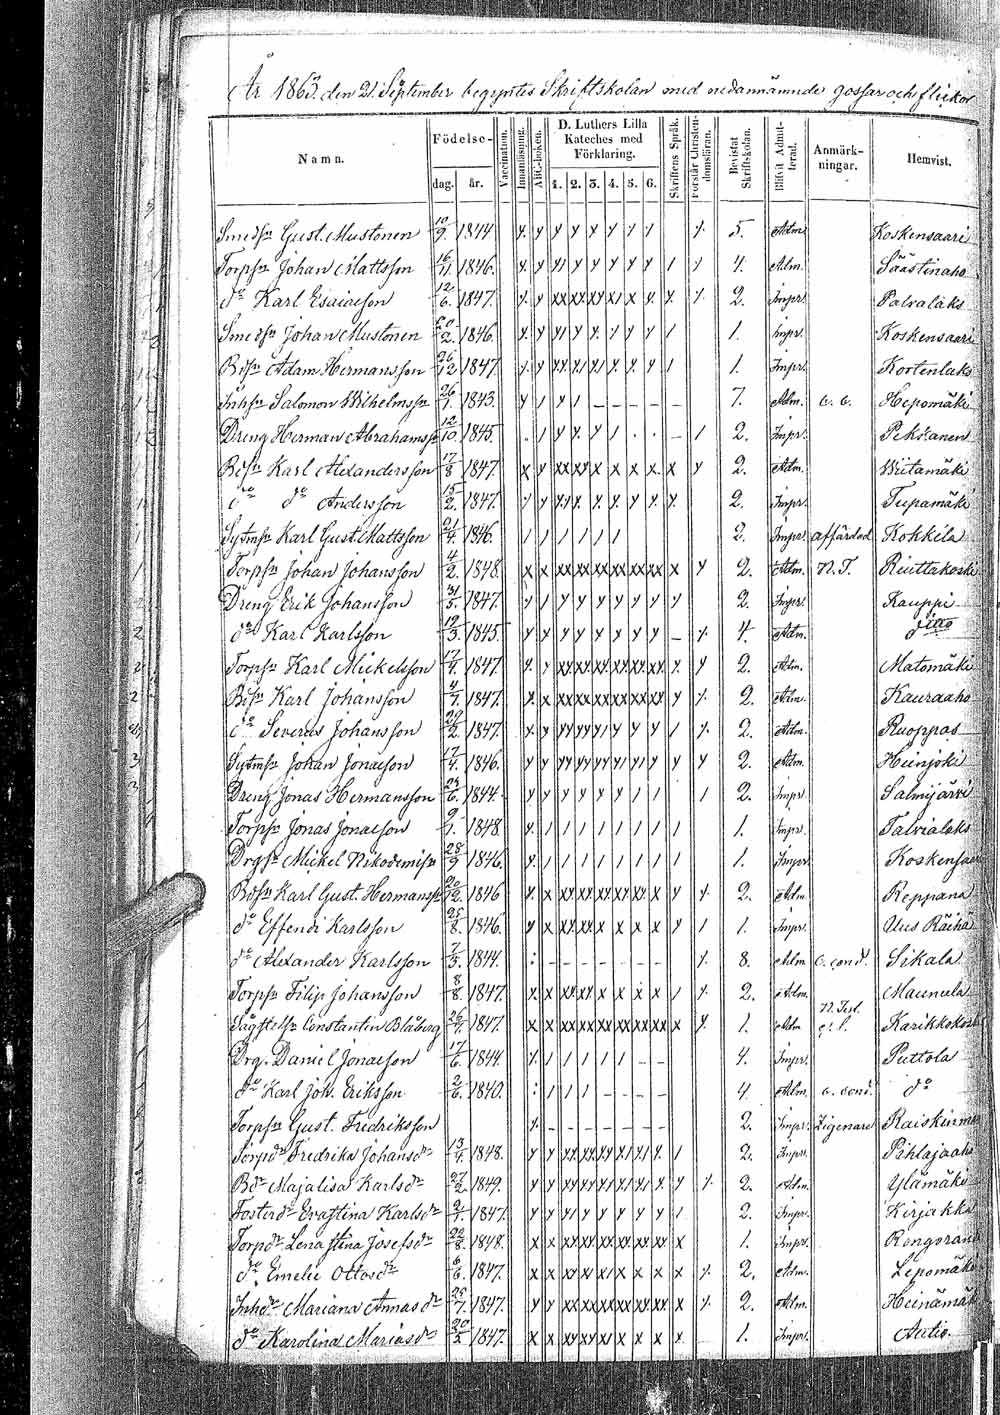 År 1863. den 21. September begyntes Skriftskolan med nedannämnde gossar och flickor
Namn. Födelse- dag. år. Vaccination. Innanläsning. ABC-boken. D. Luthers Lilla Kateches med Förklaring. 1. 2. 3. 4. 5. 6. Skriftens Språk. Förstår Christendomsläran. Bevistat Skriftskolan. Blifvit Admitterad. Anmärkningar. Hemvist.
Smedsn Gust. Mustonen 10/9. 1844 5. Adm Koskensaari
Torpsn Johan Mattsson 16/11 1846. 4. Adm. Säästinaho
do Karl Esaiasson 12/6. 1847. 2. Impr. Palvalaks
Smedsn Johan Mustonen 20/2. 1846. 1. Impr. Koskensaari
Bdsn Adam Hermansson 26/12 1847. 1. Impr. Kortenlaks
Inhsn Salomon Wilhelmsson 26/1. 1843. 7. Adm. Hepomäki
Dreng Herman Abrahamsson 12/10. 1845. 2. Impr. Pekkanen
Bdsn Karl Alexandersson 17/8 1847. 2. Adm. Wiitamäki
do do Andersson 15/2. 1847. 2. Impr. Tupamäki
Sytmsn Karl Gust. Mattsson 21/4. 1846. 2. Impr. affärdad Kokkila
Torpsn Johan Johansson 4/2. 1848. 2. Adm. N.T. Riuttakoski
Dreng Erik Johansson 31/5. 1847. 2. Impr. Kauppi
do Karl Karlsson 19/3. 1845. 4. Adm. ditto
Torpsn Karl Mickelsson 17/4. 1847. 2. Adm. Matomäki
Bdsn Karl Johansson 4/7. 1847. 2. Adm. Kauraaho
do Severus Johansson 29/2. 1847. 2. Adm. Ruoppas
Sytmsn Johan Jonasson 17/4. 1846. 2. Adm. Heinjoki
Dreng Jonas Hermansson /6. 1844. 2. Impr. Salmijärvi
Torpsn Jonas Jonasson 9/1. 1848. 1. Impr. Talvialaks
Drgsn Mickel Nikodemisson 28/9 1846. 1. Impr. Koskensaari
Bdsn Karl Gust. Hermansson 20/12. 1846 2. Adm Reppana
do Effendi Karlsson 25/8. 1846. 1. Impr. Uus Räihä
do Alexander Karlsson 7/3. 1844. 8. Adm c. cond. Sikala
Torpsn Filip Johansson 8/8. 1847. 2. Adm. Maunula
Sågställsn Constantin Blåberg 26/4. 1847. 1. Adm N. Test. Karikkokoski
Drg. Daniel Jonasson 17/6. 1844. 4. Impr. Puttola
do Karl Joh. Eriksson 2/6. 1840. 4 Adm. c. cond. do
Torpsn Gust. Fredriksson 2. Impr. Zigenare
Torpdr Fredrika Johansdr 13/4. 1848. 2. Impr. Pihlajaaho
Bdr Majalisa Karlsdr 27/2. 1849. 2. Adm. Ylämäki
Fosterdr Evastina Karlsdr 2/1. 1847. 2. Impr. Kirjakka
Torpdr Lenastina Josefsdr 22/8. 1848. 1. Impr.
do Emelie Ottosdr 6/6. 1847. 2. Adm. Lepomäki
Inhdr Mariana Annasdr 25/7. 1847. 2. Adm. Heinämäki
do Karolina Mariasdr 20/2 1847. 1. Impr. Autio.